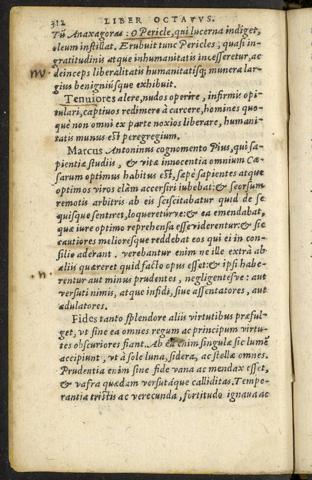 312 LIBER OCTAVVS.
Tū Anaxagoras: O Pericle, qui lucerna indiget,
oleum instillat. Erubuit tunc Pericles, quasi in-
gratitudinis atque inhumanitatis incesseretur, ac
deinceps liberalitatis humanitatisq; munera lar-
gius benigniusque exhibuit.
Tenuiores alere, nudos operire, infirmis opi-
tulari, captiuos redimere à carcere, homines quo-
que non omni ex parte noxios liberare, humani-
tatis munus est peregregium.
Marcus Antoninus cognomento Pius, qui sa-
pientiæ studiis, & vitæ innocentia omnium Cæ-
sarum optimus habitus est, sæpè sapientes atque
optimos viros clàm accersiri iubebat: & seorsum
remotis arbitris ab eis sciscitabatur quid de se
quisque sentiret, loquereturve: & ea emendabat,
quæ iure optimo reprehensa esse viderentur: & sic
cautiores melioresque reddebat eos qui ei in con-
silio aderant. verebantur enim ne ille extrà ab
aliis quæreret quid facto opus esset: & ipsi habe-
rentur aut minus prudentes, negligentesve: aut
versuti nimis, atque infidi, siue assentatores, aut
adulatores.
Fides tanto splendore aliis virtutibus præful-
get, vt sine ea omnes regum ac principum virtu-
tes obscuriores fiant. Ab ea enim singulæ sic lumē
accipiunt, vt à sole luna, sidera, ac stellæ omnes.
Prudentia enim sine fide vana ac mendax esset,
& vafra quædam versutáque calliditas. Tempe-
rantia tristis ac verecunda, fortitudo ignaua ac